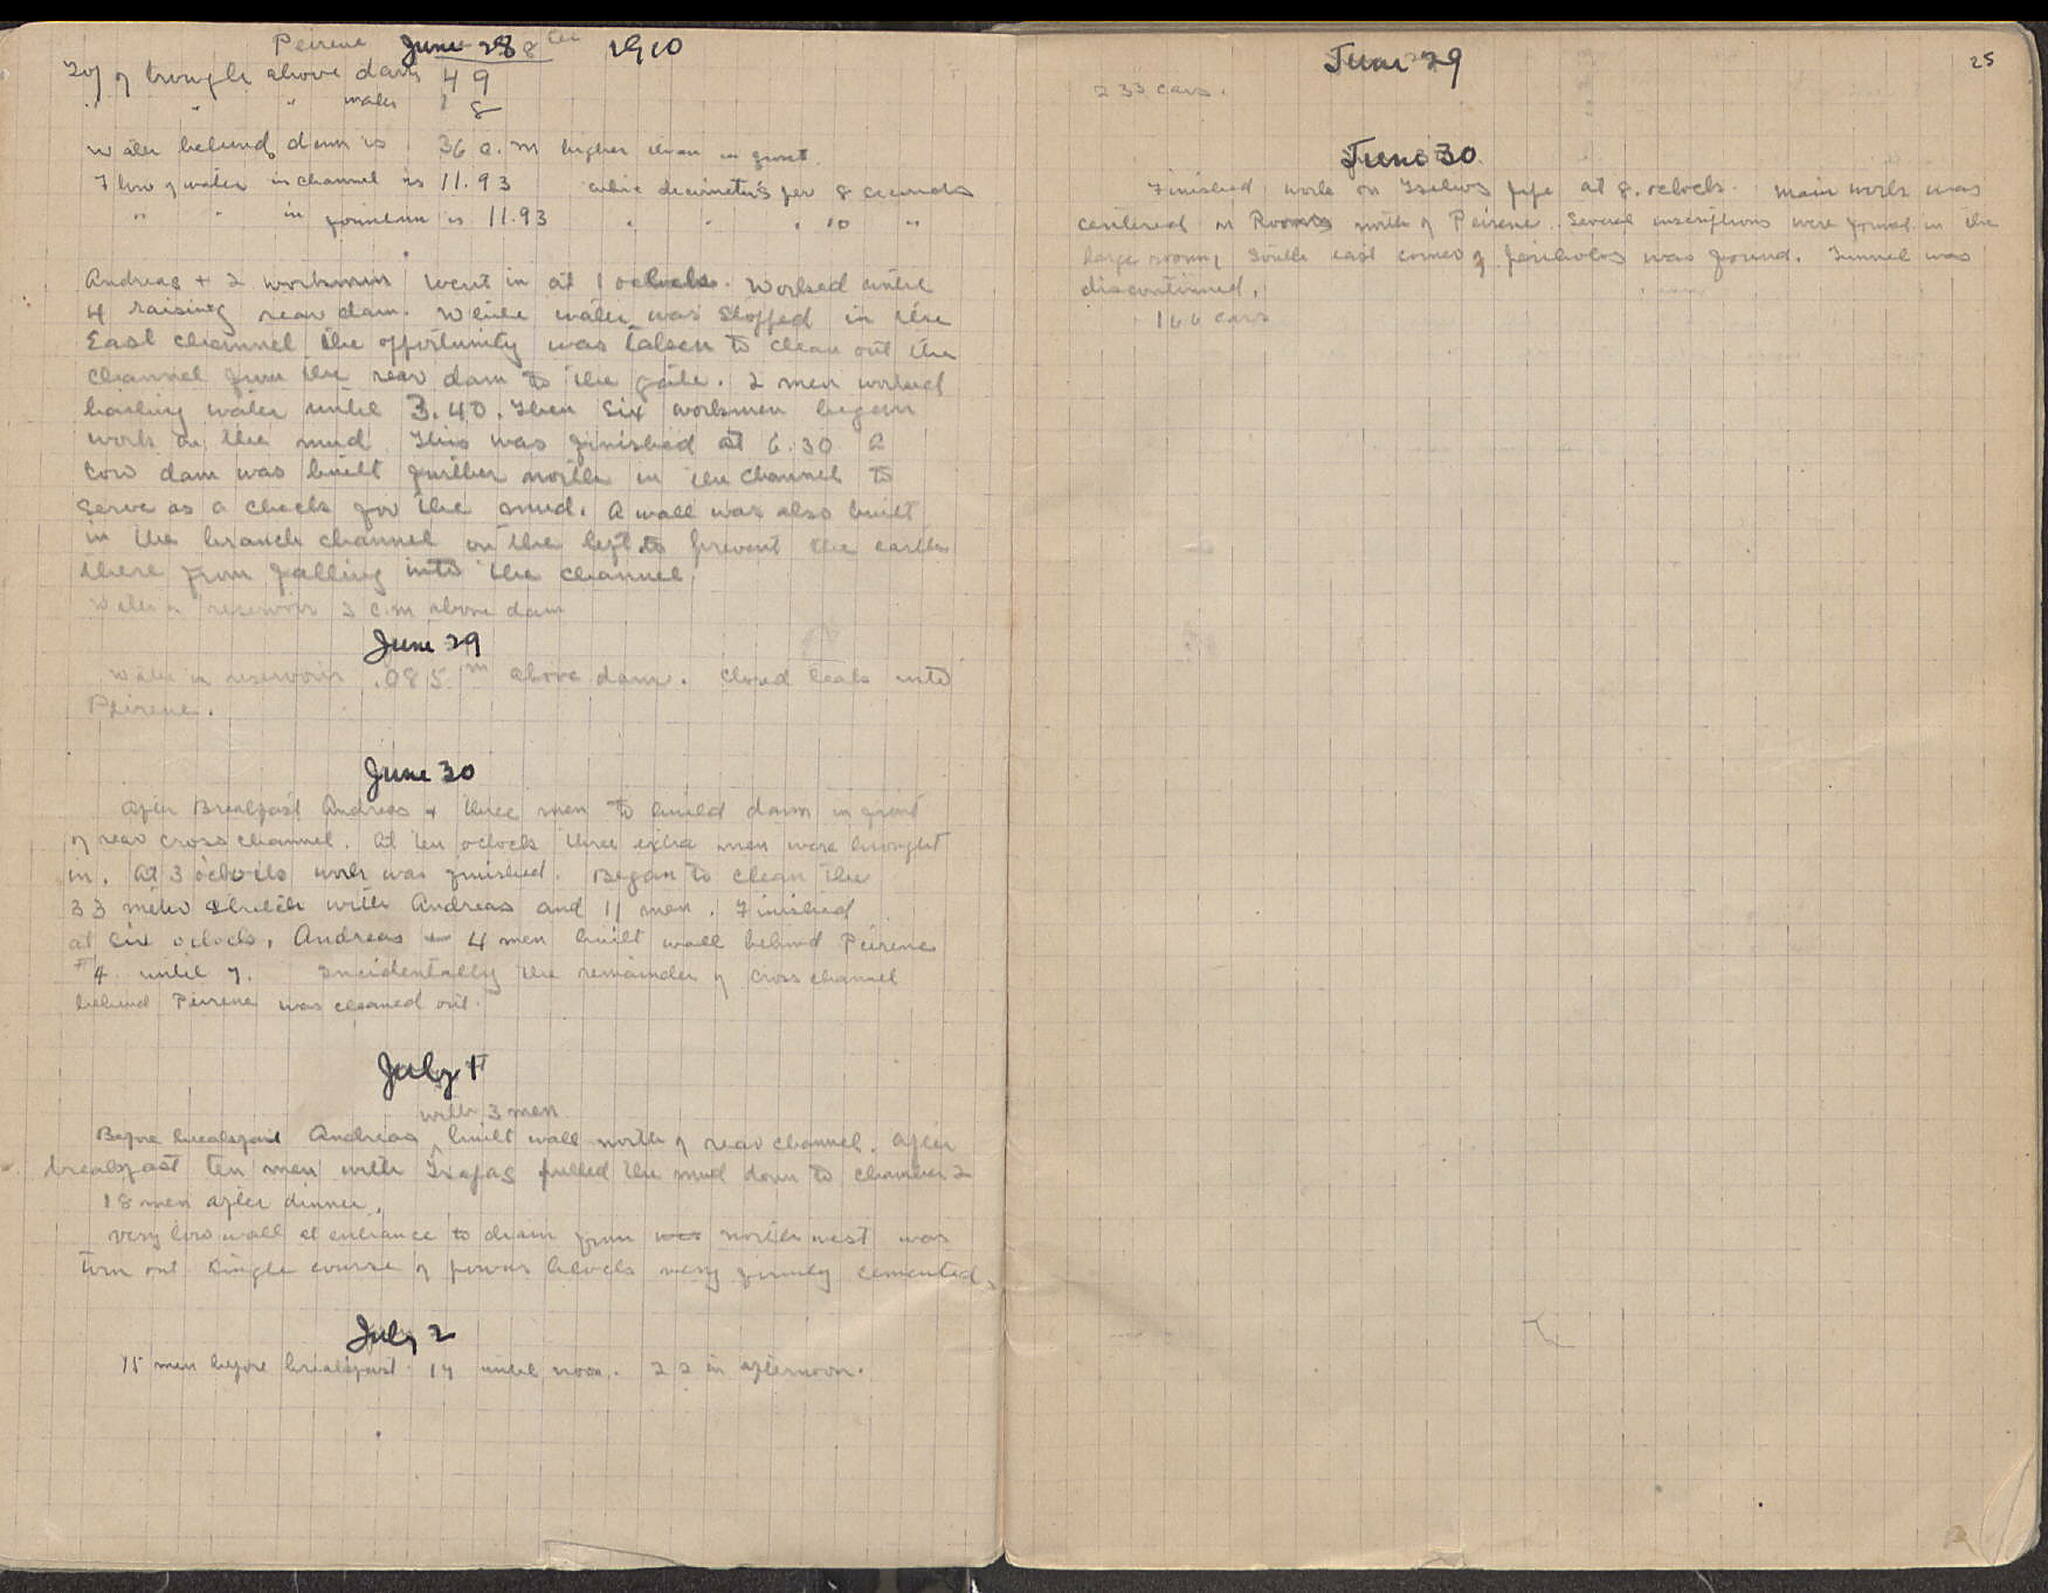 Peirene June 28th 1910
Top of triangle above dam 49
" " " water 18
Water behind dam is 36 c.m higher than in front.
Flow of water in channel is 11.93 cubic decimeters per 8 seconds
" " in fountain is 11.93 " " " 10 "
Andreas + 2 workmen went in at 1 oclock. Worked until
4 raising rear dam. While water was stopped in the
East channel the opportunity was taken to clean out the
channel from the rear dam to the gate. 2 men worked
bailing water until 3.40. Then six workmen began
work on the mud. This was finished at 6.30 A
low dam was built further north in the channel to
serve as a check for the mud. A wall was also built
in the branch channel on the left to prevent the earth
there from falling into the channel.
Water in reservoir 3 c.m above dam
June 29
Water in reservoir .085 m above dam. Closed leaks into
Peirene.
June 30
After Breakfast Andreas + three men to build dam in front
of rear cross channel. At ten oclock three extra men were brought
in. At 3 oclock work was finished. Began to clean the
33 meter stretch with Andreas and 11 men. Finished
at six oclock. Andreas + 4 men built wall behind Peirene
#4 until 7. Incidentally the remainder of cross channel
behind Peirene was cleaned out.
July 1
with 3 men
Before breakfast Andreas built wall north of rear channel. After
breakfast ten men with pulled the mud down to chamber 2
18 men after dinner.
Very low wall at entrance to drain from north west was
torn out. Single course of poros blocks very firmly cemented.
July 2
15 men before breakfast. 17 until noon. 22 in afternoon.
June 29
25
233 cars.
June 30
Finished work on pipe at 8. oclock. Main work was
centered in Rooms north of Peirene. Several inscriptions were found in the
large room, South east corner of peribolos was found. Tunnel was
discontinued.
166 cars